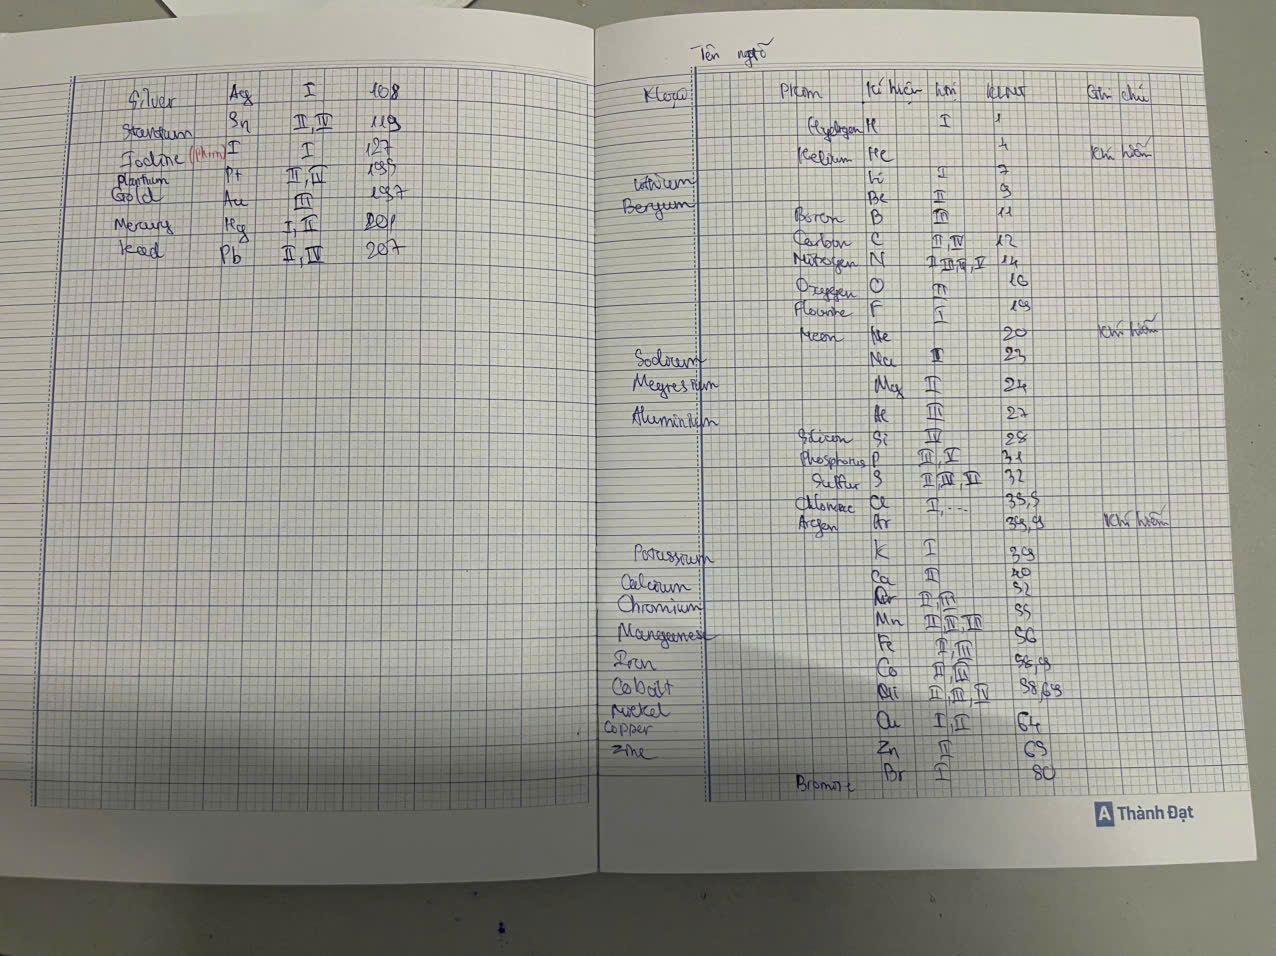 Silver Ag I 108
Sn II, IV 119
Iodine (Phim) I I 127
Plantium Pt II, IV 195
Gold Au III 197
Mercury Hg I, II 201
Lead Pb II, IV 207
Tên ngtố
Kloại Phim Kí hiệu htrị KLNT Ghi chú
Hydrogen H I 1
Helium He 4 Khí hiếm
Lithium Li I 7
Beryum Be II 9
Boron B III 11
Carbon C II, IV 12
Nitrogen N II, III, IV, V 14
Oxygen O II 16
Flourine F I 19
Neon Ne 20 Khí hiếm
Sodium Na I 23
Megnesium Mg II 24
Aluminium Al III 27
Silicon Si IV 28
Phosphorus P III, V 31
Sulfur S II, IV, VI 32
Cl I, ... 35,5
Argon Ar 39,9 Khí hiếm
Potassium K I 39
Calcium Ca II 40
Chromium Cr II, III 52
Manganese Mn 55
Iron Fe II, III 56
Cobalt Co II, III 58,9
Nickel Ni 58,69
Copper Cu I, II 64
Zinc Zn II 65
Bromine Br I 80
A Thành Đạt